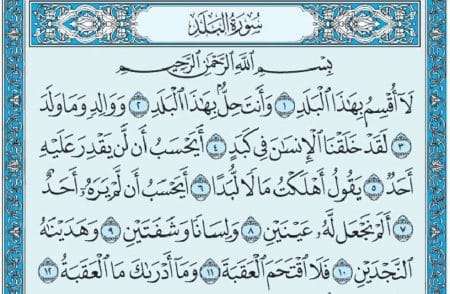 سُورَةُ الْبَلَدِ
بِسْمِ اللَّهِ الرَّحْمَٰنِ الرَّحِيمِ
لَا أُقْسِمُ بِهَٰذَا الْبَلَدِ ١ وَأَنتَ حِلٌّ بِهَٰذَا الْبَلَدِ ٢ وَوَالِدٍ وَمَا وَلَدَ
٣ لَقَدْ خَلَقْنَا الْإِنسَٰنَ فِي كَبَدٍ ٤ أَيَحْسَبُ أَن لَّن يَقْدِرَ عَلَيْهِ
أَحَدٌ ٥ يَقُولُ أَهْلَكْتُ مَالًا لُّبَدًا ٦ أَيَحْسَبُ أَن لَّمْ يَرَهُۥ أَحَدٌ
٧ أَلَمْ نَجْعَل لَّهُۥ عَيْنَيْنِ ٨ وَلِسَانًا وَشَفَتَيْنِ ٩ وَهَدَيْنَٰهُ
النَّجْدَيْنِ ١٠ فَلَا اقْتَحَمَ الْعَقَبَةَ ١١ وَمَا أَدْرَىٰكَ مَا الْعَقَبَةُ ١٢